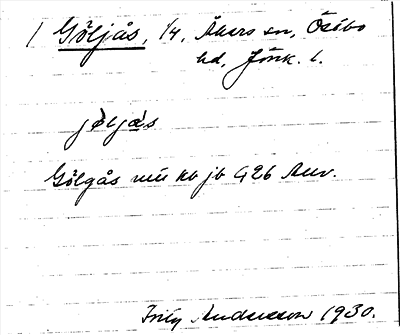 / Göljås, 1/4, Åkers sn, Östbo
hd, Jönk. l.
jøljås
Gölgås nu kb jb 426 Anv.
Andersson 1930.